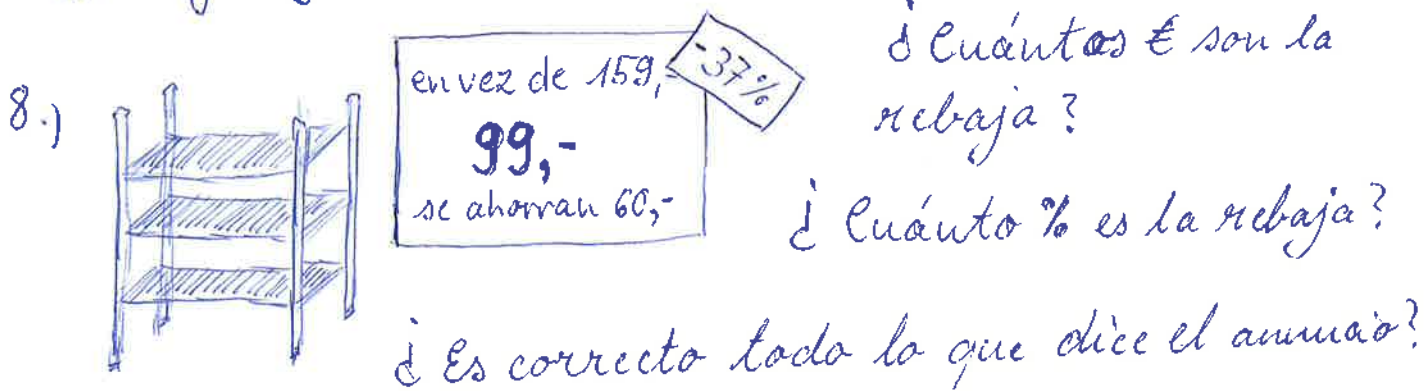 8.)
en vez de 159,-
-37%
99,-
se ahorran 60,-
¿Cuántos € son la
rebaja?
¿Cuánto % es la rebaja?
¿Es correcto todo lo que dice el anuncio?